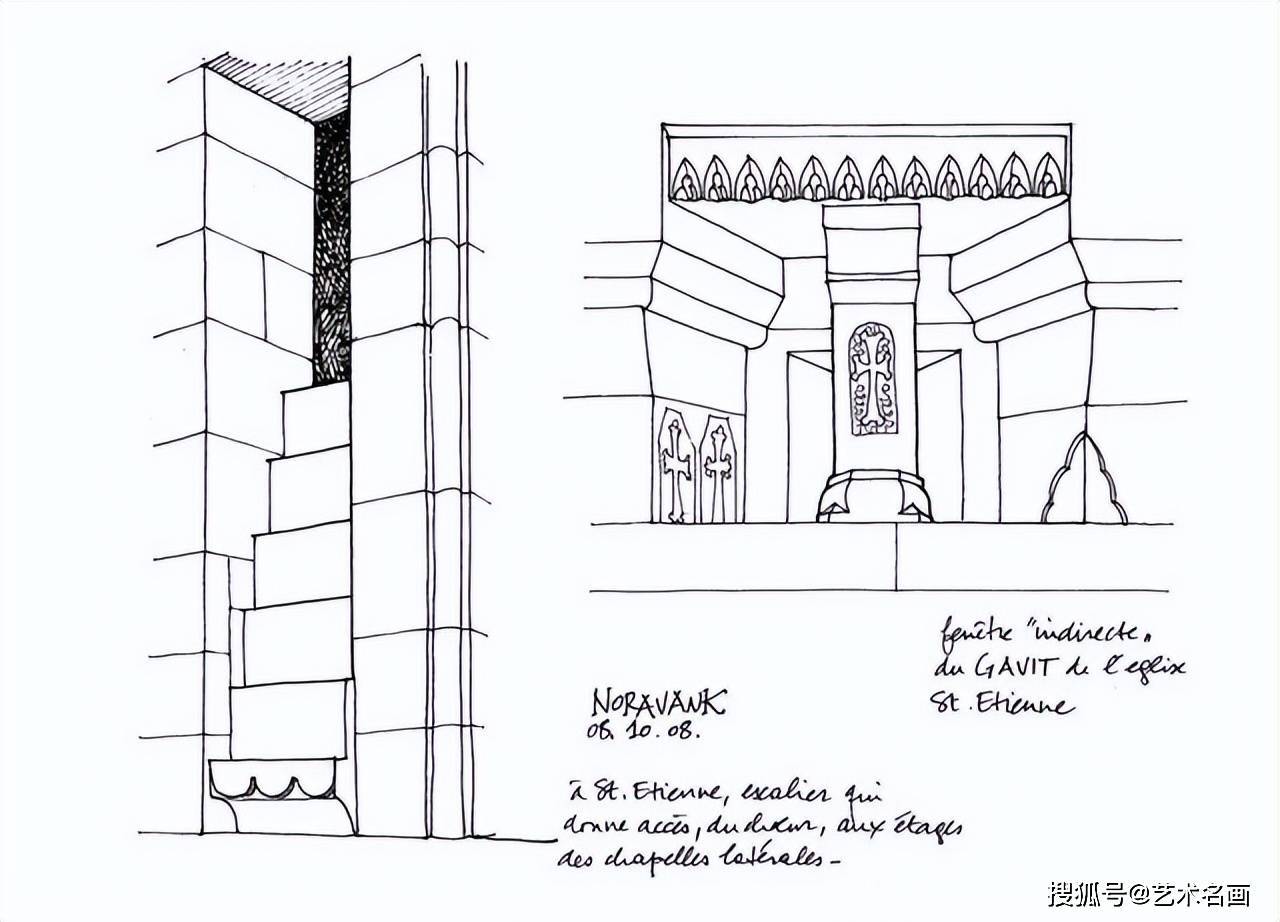 fenêtre "indirecte"
du GAVIT de l'eglise
St. Etienne
NORAVANK
08.10.08.
à St. Etienne, escalier qui
donne accès, du chœur, aux étages
des chapelles latérales -
搜狐号@艺术名画